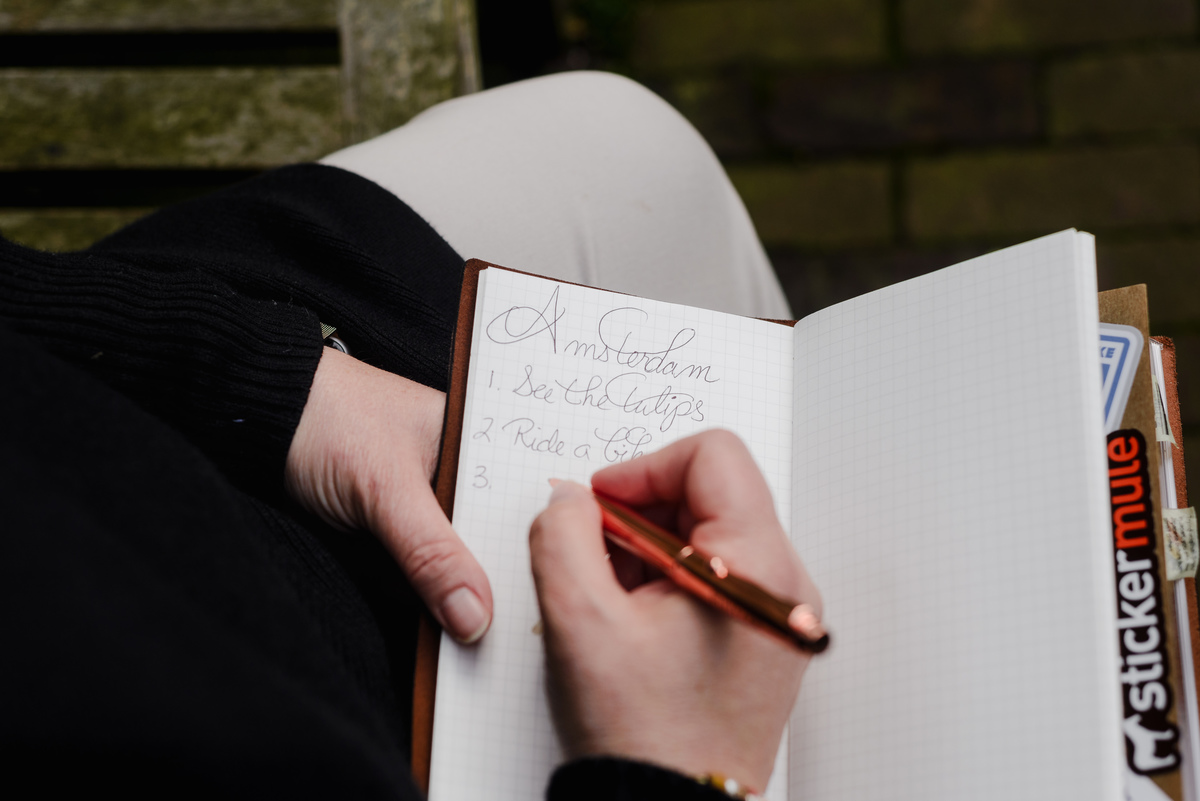 Amsterdam
1. See the tulips
2 Ride a
3.
stickermule